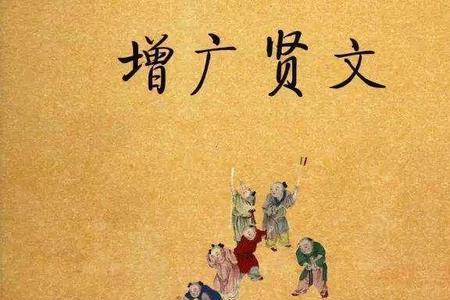 增广贤文